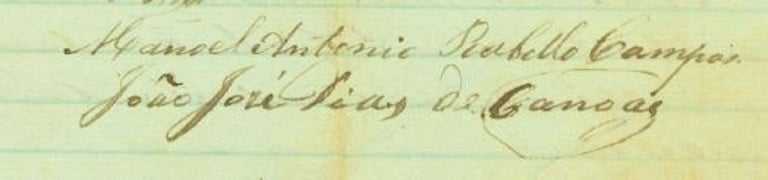 Manoel Antonio Rabello Campos.
João José Dias de Canoas